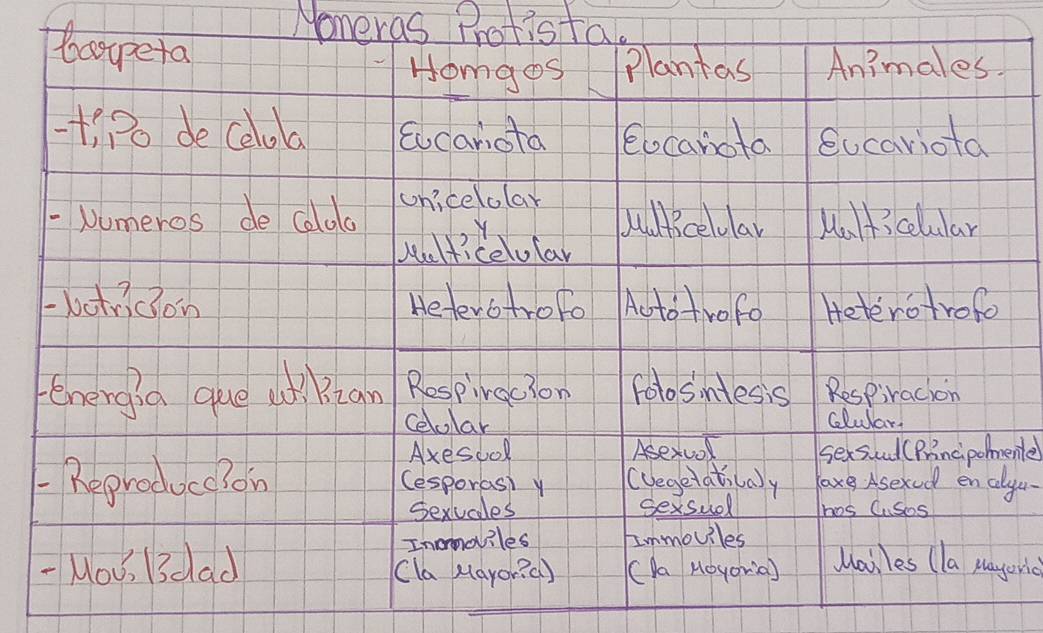 Moneras Protista.
Carpeta Homgos Plantas Animales.
-tipo de celula Eucariota Eucariota Eucariota
- Numeros de celula unicelular y Multicelular Multicelular Multicelular
- Nutricion Heterótrofo Autótrofo Hetérótrofo
-Energia que utilizan Respiracion celular Fotosíntesis Respiración celular.
- Reproducción Axesual (esporas) y Sexuales Asexual (vegetativa) y Sexsual Sexsual (Principalmente) Asexual en algunos Casos
- Movilidad Inmoviles (la Mayoria) Immoviles (la Moyoria) (la mayoria